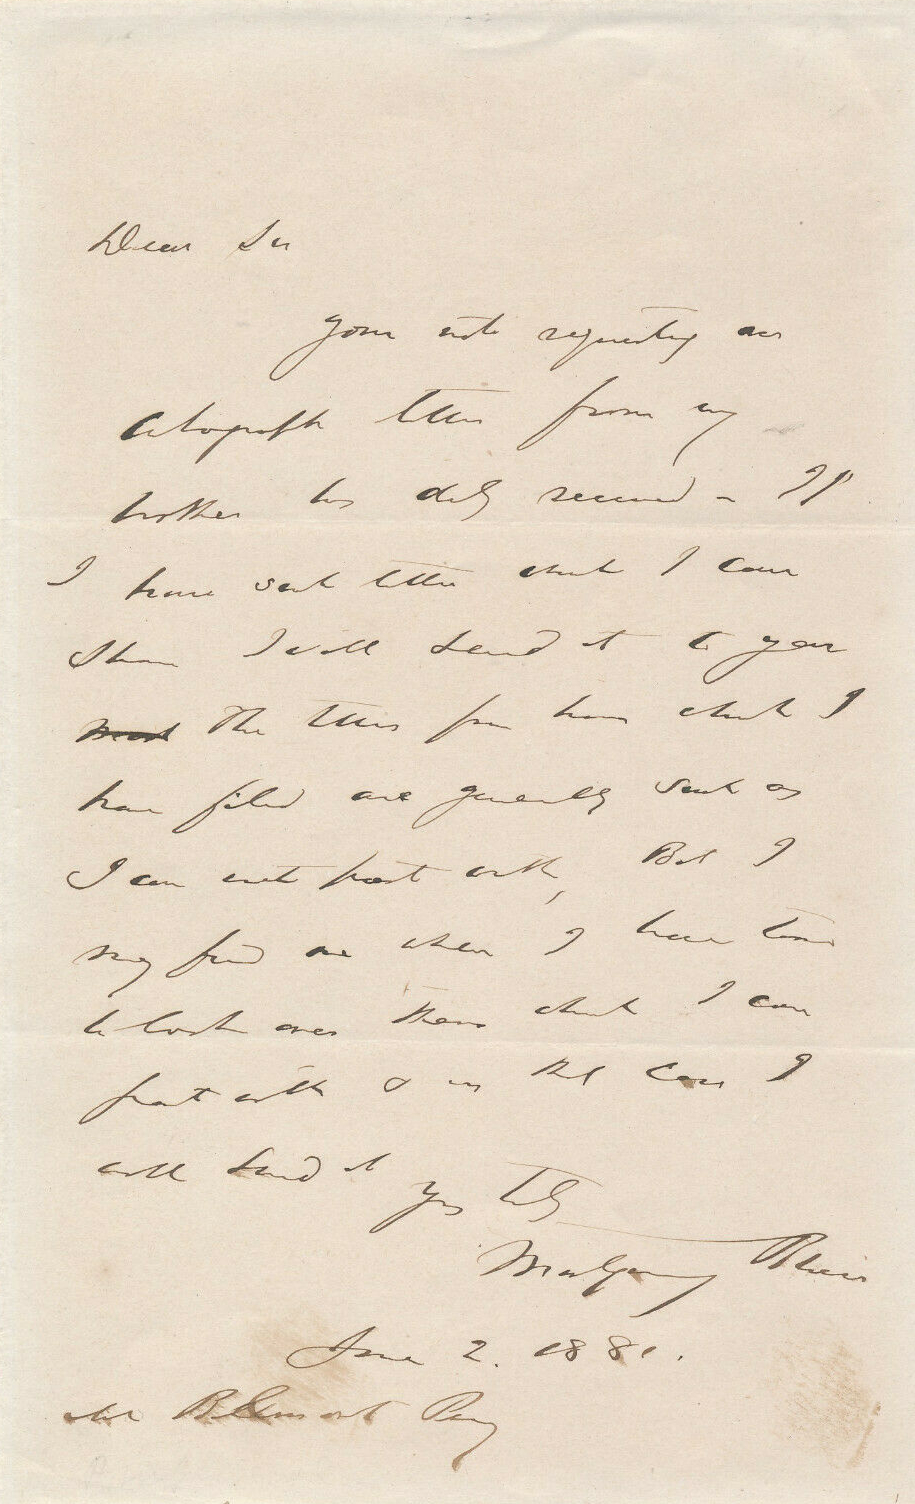 Dear Sir
Your note requesting an
autograph letter from my
brother has duly received - If
I have such letter which I can
spare I will send it to you
The letters from him which I
have filed are generally such as
I can not part with, But I
may find one when I have time
to look over them which I can
part with & in that case I
will send it
Yrs truly
Montgomery Blair
June 2. 1881.
Mr Belmont Perry